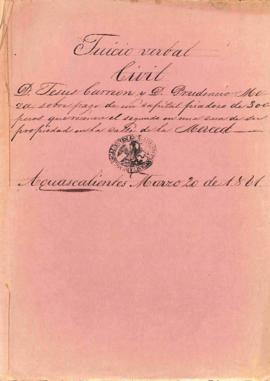 Juicio verbal
Civil
D. Jesus Carreon y D. Prudencio Me
za sobre pago de un capital piadoso de 300
pesos que reconoce el segundo en una casa de su
propiedad en la calle de la Merced
Aguascalientes Marzo 20 de 1861